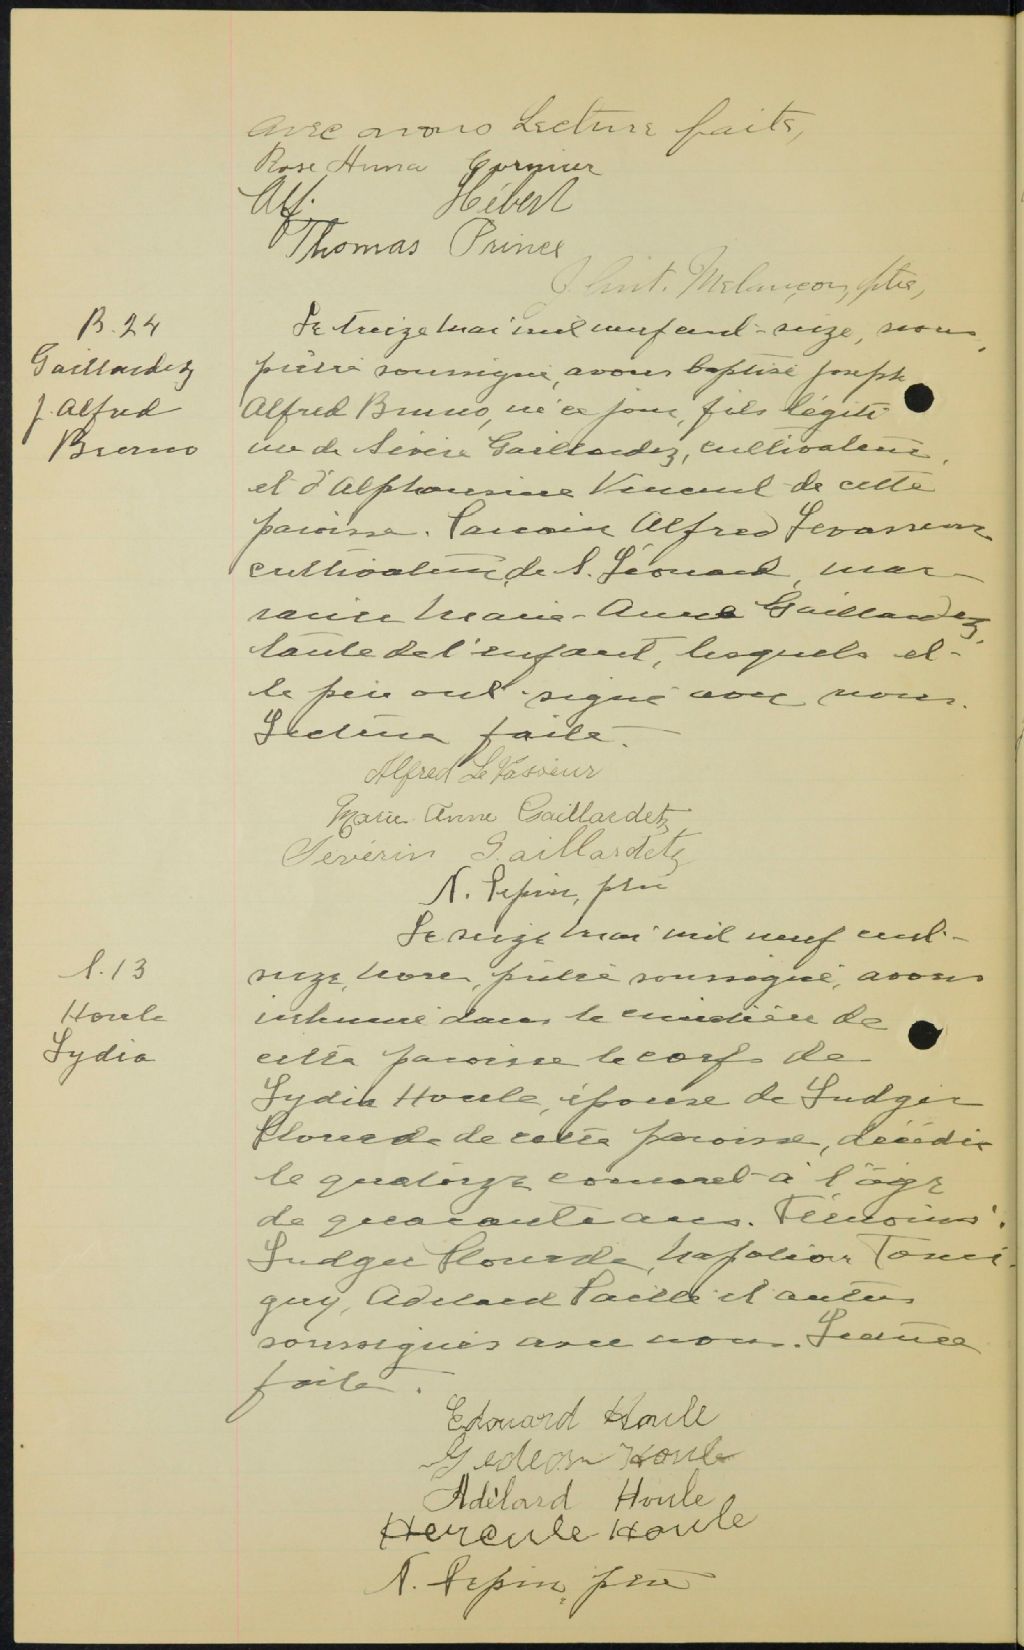 avec nous Lecture faite,
Rose Anna Cormier
Alf. Hébert
Thomas Prince
J. Ant. Melançon, ptre,
B. 24
Gaillardetz
J. Alfred
Bruno
Le treize mai mil neuf cent-seize, nous,
prêtre soussigné, avons baptisé Joseph
Alfred Bruno, né ce jour, fils légiti
me de Sévère Gaillardez, cultivateur,
et d'Alphonsine Vincent de cette
paroisse. Parrain Alfred Levasseur
cultivateur, de S. Léonard, mar-
raine Marie-Anna Gaillardez,
tante de l'enfant, lesquels et-
le père ont signé avec nous.
Lecture faite.
Alfred LeVasseur
Marie Anne Gaillardetz
Séverin Gaillardetz
N. Pepin, ptre
S. 13
Houle
Lydia
Le seize mai mil neuf cent-
seize, nous, prêtre soussigné, avons
inhumé dans le cimetière de
cette paroisse le corps de
Lydia Houle, épouse de Ludger
Plourde de cette paroisse, décédée
le quatorze courant à l'âge
de quarante ans. Témoins:
Ludger Plourde, Napoléon Tour-
guy, Adelard Paillé et autres
soussignés avec nous. Lecture
faite.
Edouard Houle
Gedeon Houle
Adélard Houle
Hercule Houle
N. Pepin, ptre